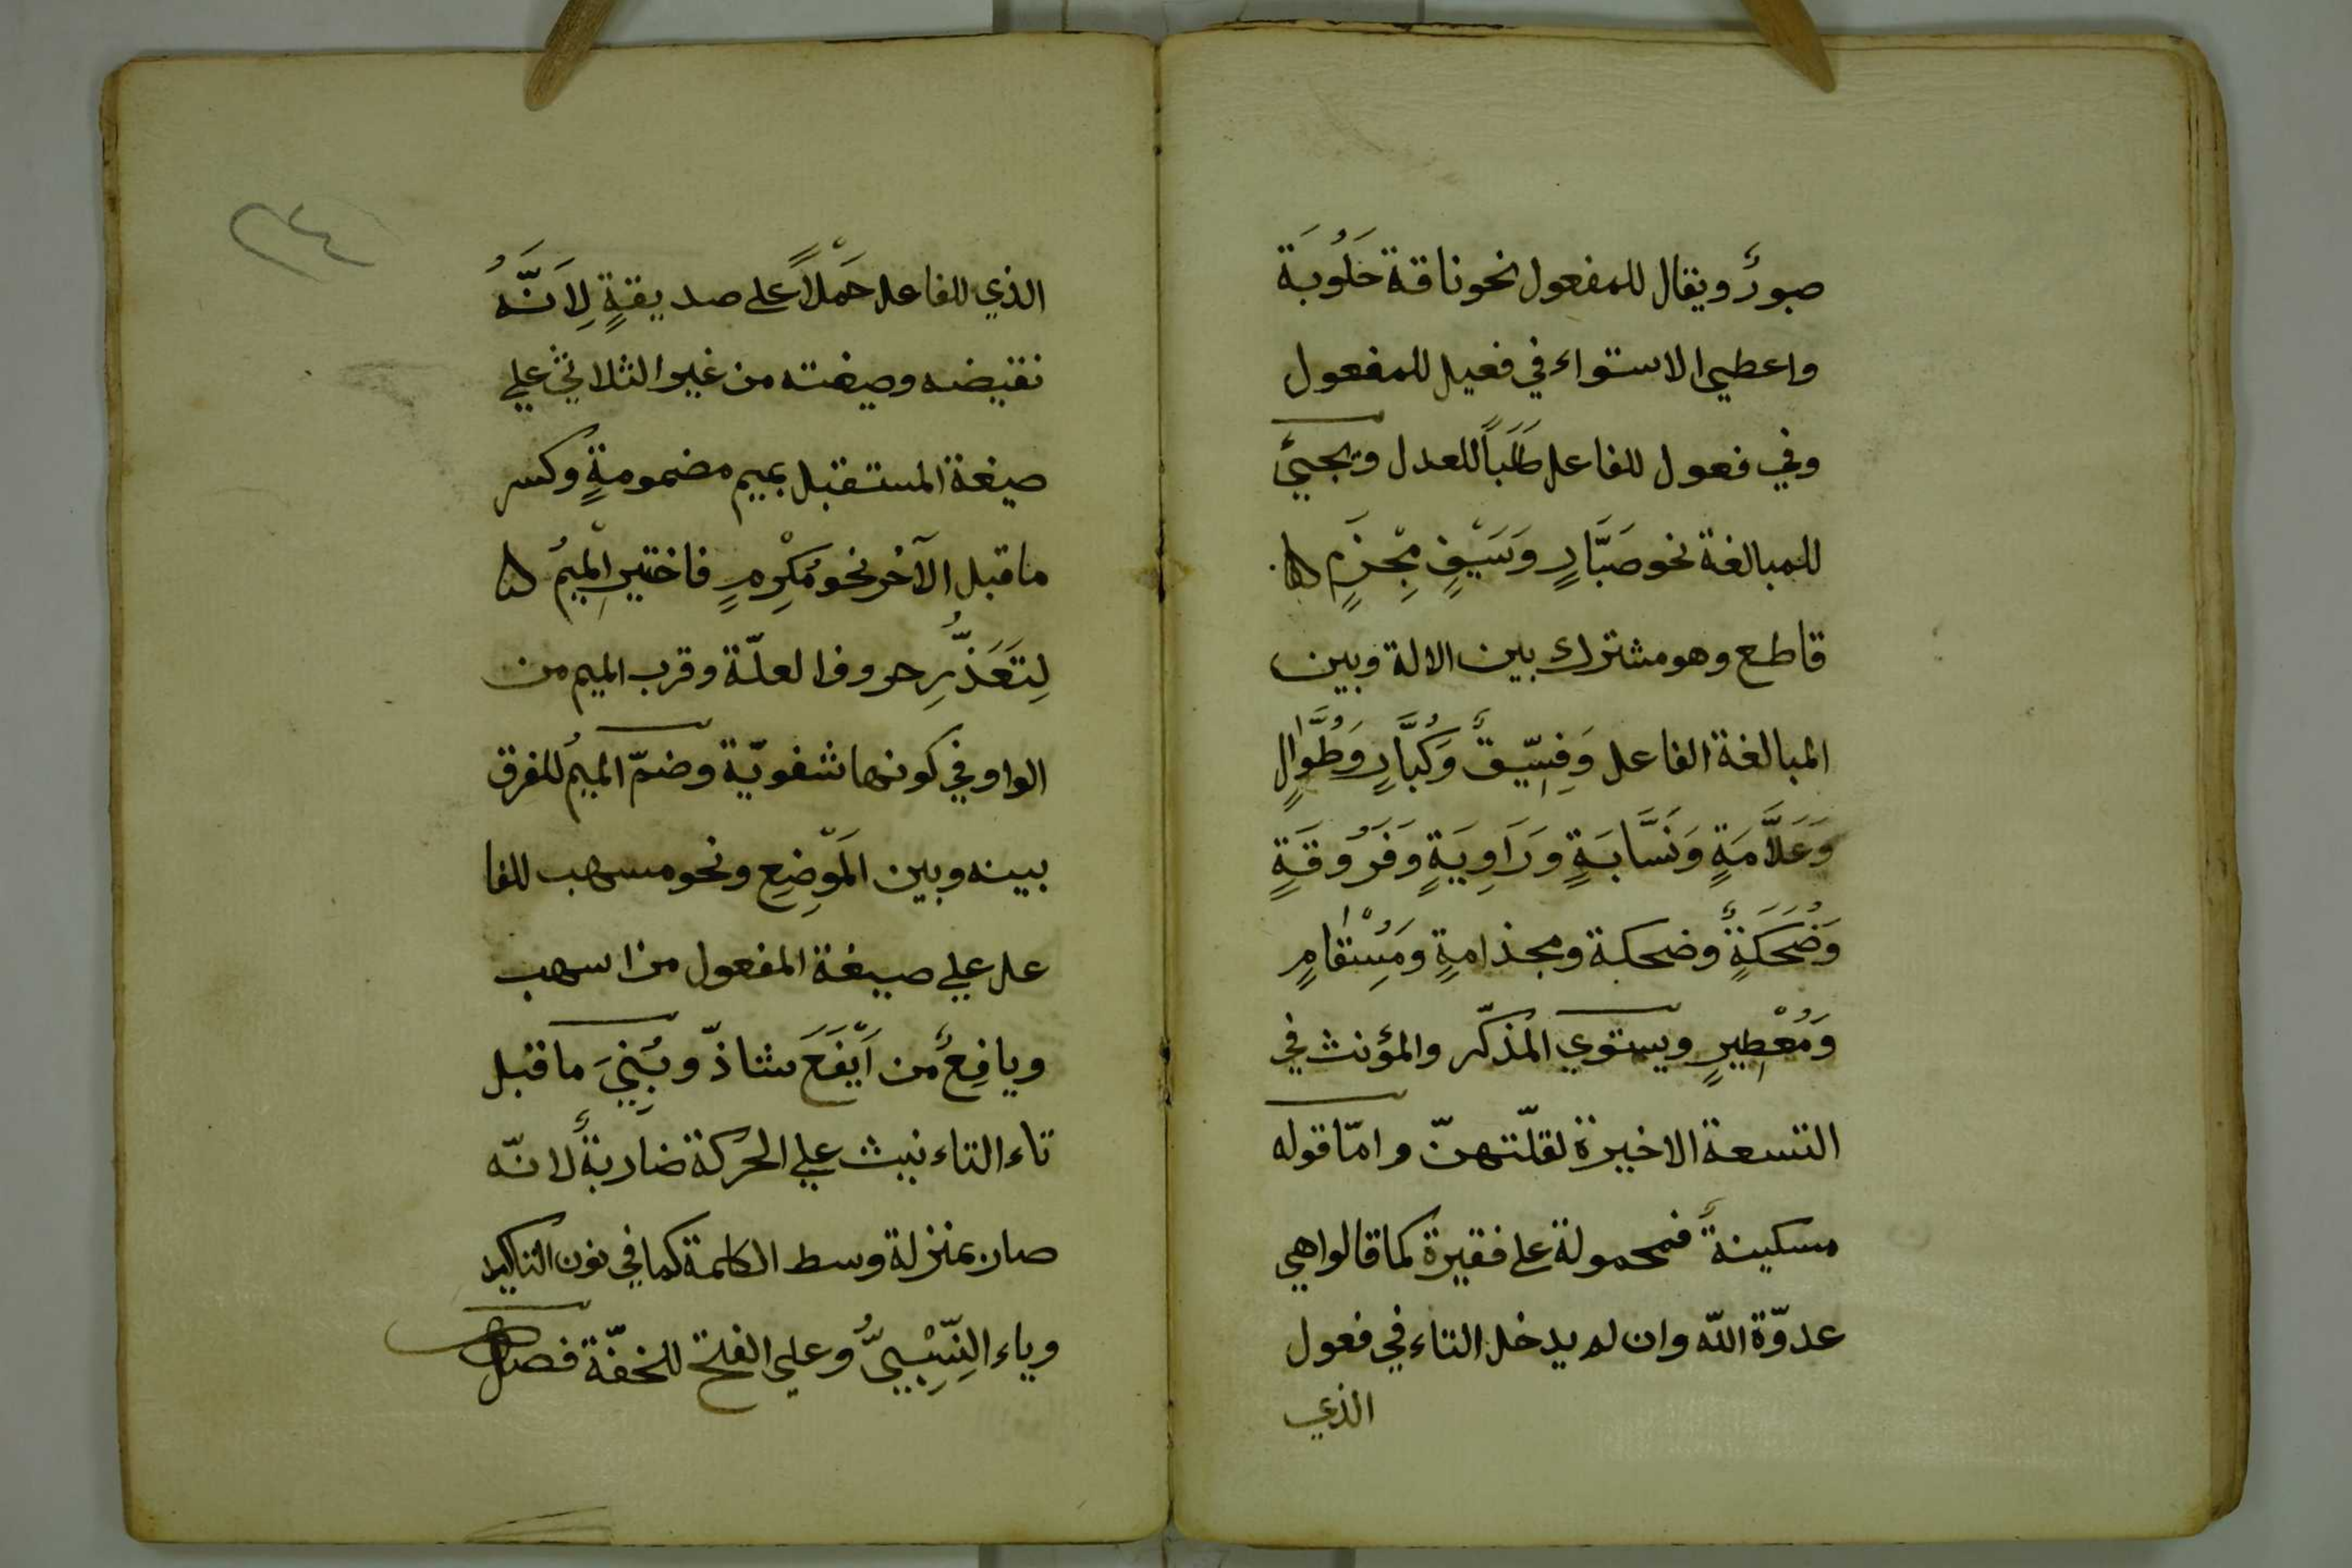 صبورٌ ويقال للمفعول نحو ناقة حَلُوبَة
واعطي الاستواء في فعيل للمفعول
وفي فعول للفاعل طَلَباً للعدل ويجيئ
للمبالغة نحو صَبَّارٍ وَسَيْفٍ مِجْزَمٍ
قاطع وهو مشترك بين الالة وبين
المبالغة الفاعل وَفِسِّيقٌ وَكُبَّارٍ وَطُوَّالٍ
وَعَلاَّمَةٍ وَنَسَّابَةٍ وَرَاوِيَةٍ وَفَرُوقَةٍ
وَضُحَكَةٍ وضحكة ومجذامةٍ ومِسْقامٍ
وَمُعْطِيرٍ ويستوي المذكّر والمؤنث في
التسعة الاخيرة لقلّتهنّ وامّا قوله
مسكينةٌ فمحمولة على فقيرة كما قالوا هي
عدوّة اللّه وان لم يدخل التاء في فعول
الذي
٢٤
الذي للفاعل حَمْلاً على صديقةٍ لِاَنَّهُ
نقيضه وصيغته من غير الثلاثيّ علي
صيغة المستقبل بميم مضمومةٍ وكسر
ما قبل الآخر نحو مُكْرِمٍ فاختير الْمِيمُ
لِتَعَذُّرِ حروف العلّة وقرب الميم من
الواو في كونها شفويّة وضمّ الميمُ للفرق
بينه وبين المَوْضِعِ ونحو مسهب للفا
عل علي صيغة المفعول من اسهب
ويافِعٌ من اَيْفَعَ شاذّ ويُبْنِيَ ما قبل
تاء التاءنيث علي الحركة ضاربةٌ لانّه
صار بمنزلة وسط الكلمة كما في نون التاكيد
وياء النِّسْبِيّ وعلي الفتح للخفّة فصل